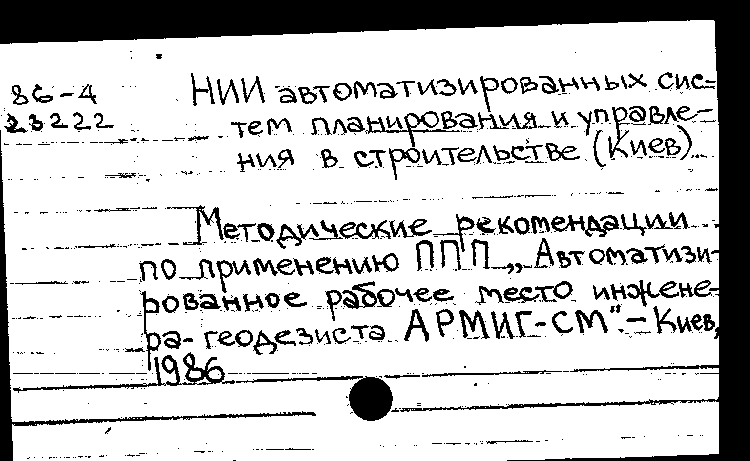 86-4
23222
НИИ автоматизированных сис=
тем планирования и управле-
ния в строительстве (Киев).
Методические рекомендации
по применению ППП „Автоматизи-
рованное рабочее место инжене-
ра-геодезиста АРМИГ-СМ". - Киев,
1986